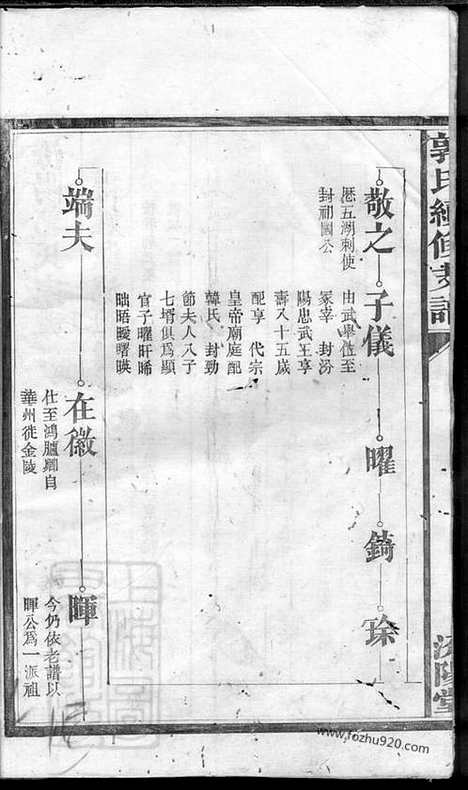 郭氏續修支譜
汾陽堂
敬之
歷五湖刺使
封祁國公
子儀
由武舉位至
冢宰 封汾
陽忠武王享
壽八十五歲
配享 代宗
皇帝廟庭配
韓氏 封勁
節夫人八子
七壻俱為顯
官子曜旰晞
昢晤曖曙暎
曜
錡
端夫
在徽
仕至鴻臚卿自
華州徙金陵
暉
今仍依老譜以
暉公為一派祖
www.fozhu920.com